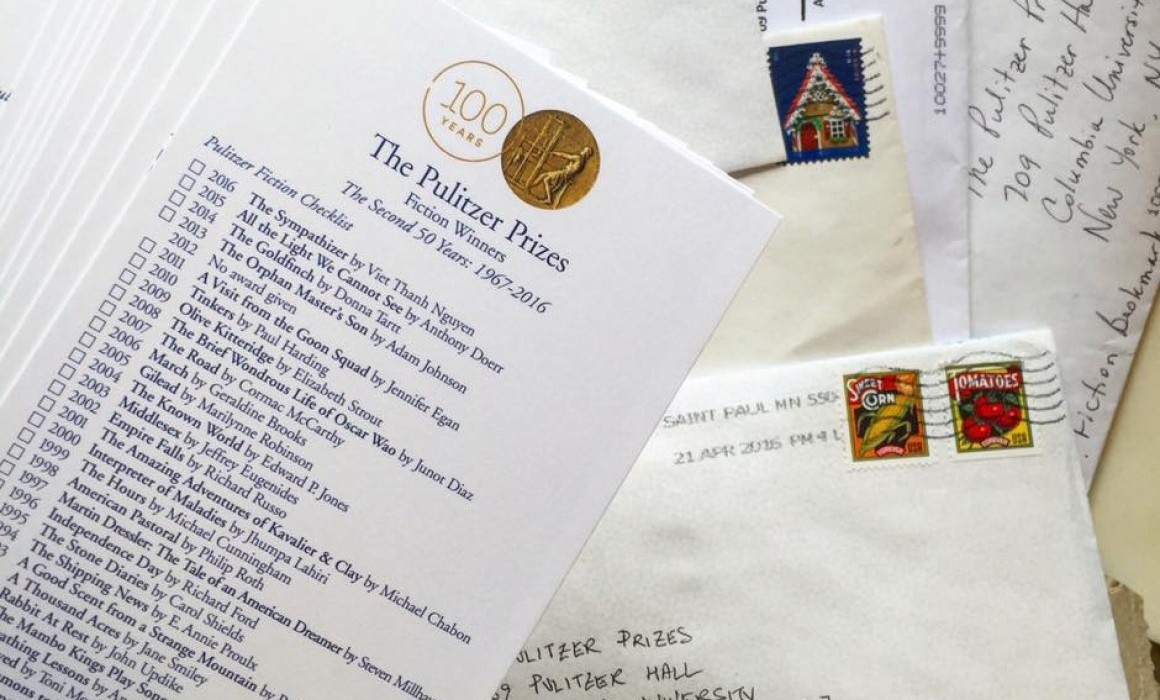 100
YEARS
The Pulitzer Prizes
Fiction Winners
The Second 50 Years: 1967-2016
Pulitzer Fiction Checklist
2016 The Sympathizer by Viet Thanh Nguyen
2015 All the Light We Cannot See by Anthony Doerr
2014 The Goldfinch by Donna Tartt
2013 The Orphan Master's Son by Adam Johnson
2012 No award given
2011 A Visit from the Goon Squad by Jennifer Egan
2010 Tinkers by Paul Harding
2009 Olive Kitteridge by Elizabeth Strout
2008 The Brief Wondrous Life of Oscar Wao by Junot Diaz
2007 The Road by Cormac McCarthy
2006 March by Geraldine Brooks
2005 Gilead by Marilynne Robinson
2004 The Known World by Edward P. Jones
2003 Middlesex by Jeffrey Eugenides
2002 Empire Falls by Richard Russo
2001 The Amazing Adventures of Kavalier & Clay by Michael Chabon
2000 Interpreter of Maladies by Jhumpa Lahiri
1999 The Hours by Michael Cunningham
1998 American Pastoral by Philip Roth
1997 Martin Dressler: The Tale of an American Dreamer by Steven Millha
1996 Independence Day by Richard Ford
1995 The Stone Diaries by Carol Shields
94 The Shipping News by E. Annie Proulx
93 A Good Scent from a Strange Mountain by
A Thousand Acres by Jane Smiley
Rabbit At Rest by John Updike
The Mambo Kings Play Song
athing Lessons by An
ved by Toni Mo
The Pulitzer Pr
709 Pulitzer Ha
Columbia Universi
New York, NY
Fiction Bookmark
SAINT PAUL MN 550
21 APR 2016 PM 4 L
SWEET CORN
FOREVER USA
TOMATOES
FOREVER USA
ULITZER PRIZES
09 PULITZER HALL